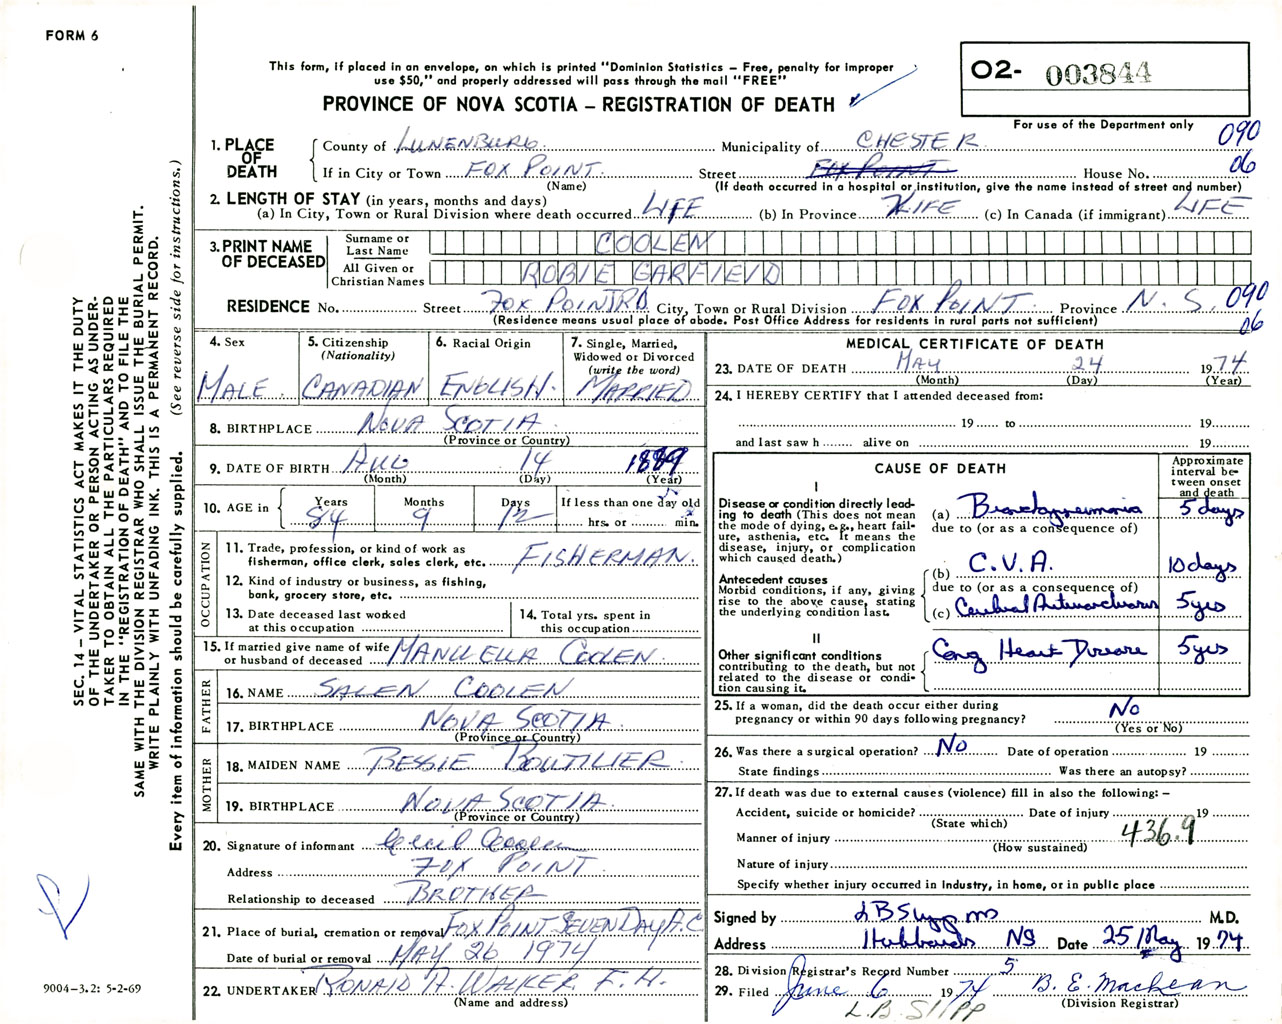 FORM 6
This form, if placed in an envelope, on which is printed "Dominion Statistics – Free, penalty for improper
use $50," and properly addressed will pass through the mail "FREE"
PROVINCE OF NOVA SCOTIA – REGISTRATION OF DEATH
02- 003844
For use of the Department only
090
06
1. PLACE OF DEATH
County of LUNENBURG Municipality of CHESTER
If in City or Town FOX POINT Street FOX POINT House No.
(Name) (If death occurred in a hospital or institution, give the name instead of street and number)
2. LENGTH OF STAY (in years, months and days)
(a) In City, Town or Rural Division where death occurred LIFE (b) In Province LIFE (c) In Canada (if immigrant) LIFE
3. PRINT NAME OF DECEASED
Surname or Last Name COOLEN
All Given or Christian Names ROBIE GARFIELD
RESIDENCE No. Street FOX POINT RD City, Town or Rural Division FOX POINT Province N. S. 090
(Residence means usual place of abode. Post Office Address for residents in rural parts not sufficient) 06
4. Sex
MALE
5. Citizenship
(Nationality)
CANADIAN
6. Racial Origin
ENGLISH
7. Single, Married,
Widowed or Divorced
(write the word)
MARRIED
8. BIRTHPLACE NOVA SCOTIA
(Province or Country)
9. DATE OF BIRTH AUG 14 1889
(Month) (Day) (Year)
10. AGE in
Years Months Days If less than one day old
84 9 12 hrs. or min.
OCCUPATION
11. Trade, profession, or kind of work as
fisherman, office clerk, sales clerk, etc. FISHERMAN.
12. Kind of industry or business, as fishing,
bank, grocery store, etc.
13. Date deceased last worked
at this occupation
14. Total yrs. spent in
this occupation
15. If married give name of wife
or husband of deceased MANUELLA COOLEN
FATHER
16. NAME SALEN COOLEN
17. BIRTHPLACE NOVA SCOTIA
(Province or Country)
MOTHER
18. MAIDEN NAME BESSIE BOUTILIER
19. BIRTHPLACE NOVA SCOTIA
(Province or Country)
20. Signature of informant Cecil Coolen
Address FOX POINT
Relationship to deceased BROTHER
21. Place of burial, cremation or removal FOX POINT SEVEN DAY A.C
Date of burial or removal MAY 26 1974
22. UNDERTAKER RONALD A. WALKER F. H.
(Name and address)
MEDICAL CERTIFICATE OF DEATH
23. DATE OF DEATH MAY 24 1974
(Month) (Day) (Year)
24. I HEREBY CERTIFY that I attended deceased from:
19 to 19
and last saw h alive on 19
CAUSE OF DEATH
Approximate
interval be-
tween onset
and death
I
Disease or condition directly lead-
ing to death (This does not
mean the mode of dying, e.g., heart fail-
ure, asthenia, etc. It means the
disease, injury, or complication
which caused death.)
(a) Bronchopneumonia 5 days
due to (or as a consequence of)
Antecedent causes
Morbid conditions, if any, giving
rise to the above cause, stating
the underlying condition last.
(b) C.V.A. 10 days
due to (or as a consequence of)
(c) Cerebral Arteriosclerosis 5 yrs
II
Other significant conditions
contributing to the death, but not
related to the disease or condi-
tion causing it.
Cong Heart Disease 5 yrs
25. If a woman, did the death occur either during
pregnancy or within 90 days following pregnancy? No
(Yes or No)
26. Was there a surgical operation? No Date of operation 19
State findings Was there an autopsy?
27. If death was due to external causes (violence) fill in also the following: –
Accident, suicide or homicide? Date of injury 19
(State which)
Manner of injury 436.9
(How sustained)
Nature of injury
Specify whether injury occurred in Industry, in home, or in public place
Signed by L B Slipp MD M.D.
Address Hubbards NS Date 25 May 1974
28. Division Registrar's Record Number 5
29. Filed June 6 1974 B. E. MacLean
(Division Registrar)
L. B. Slipp
SEC. 14 – VITAL STATISTICS ACT MAKES IT THE DUTY
OF THE UNDERTAKER OR PERSON ACTING AS UNDER-
TAKER TO OBTAIN ALL THE PARTICULARS REQUIRED
IN THE "REGISTRATION OF DEATH" AND TO FILE THE
SAME WITH THE DIVISION REGISTRAR WHO SHALL ISSUE THE BURIAL PERMIT.
WRITE PLAINLY WITH UNFADING INK. THIS IS A PERMANENT RECORD.
Every item of information should be carefully supplied. (See reverse side for instructions.)
9004-3.2: 5-2-69